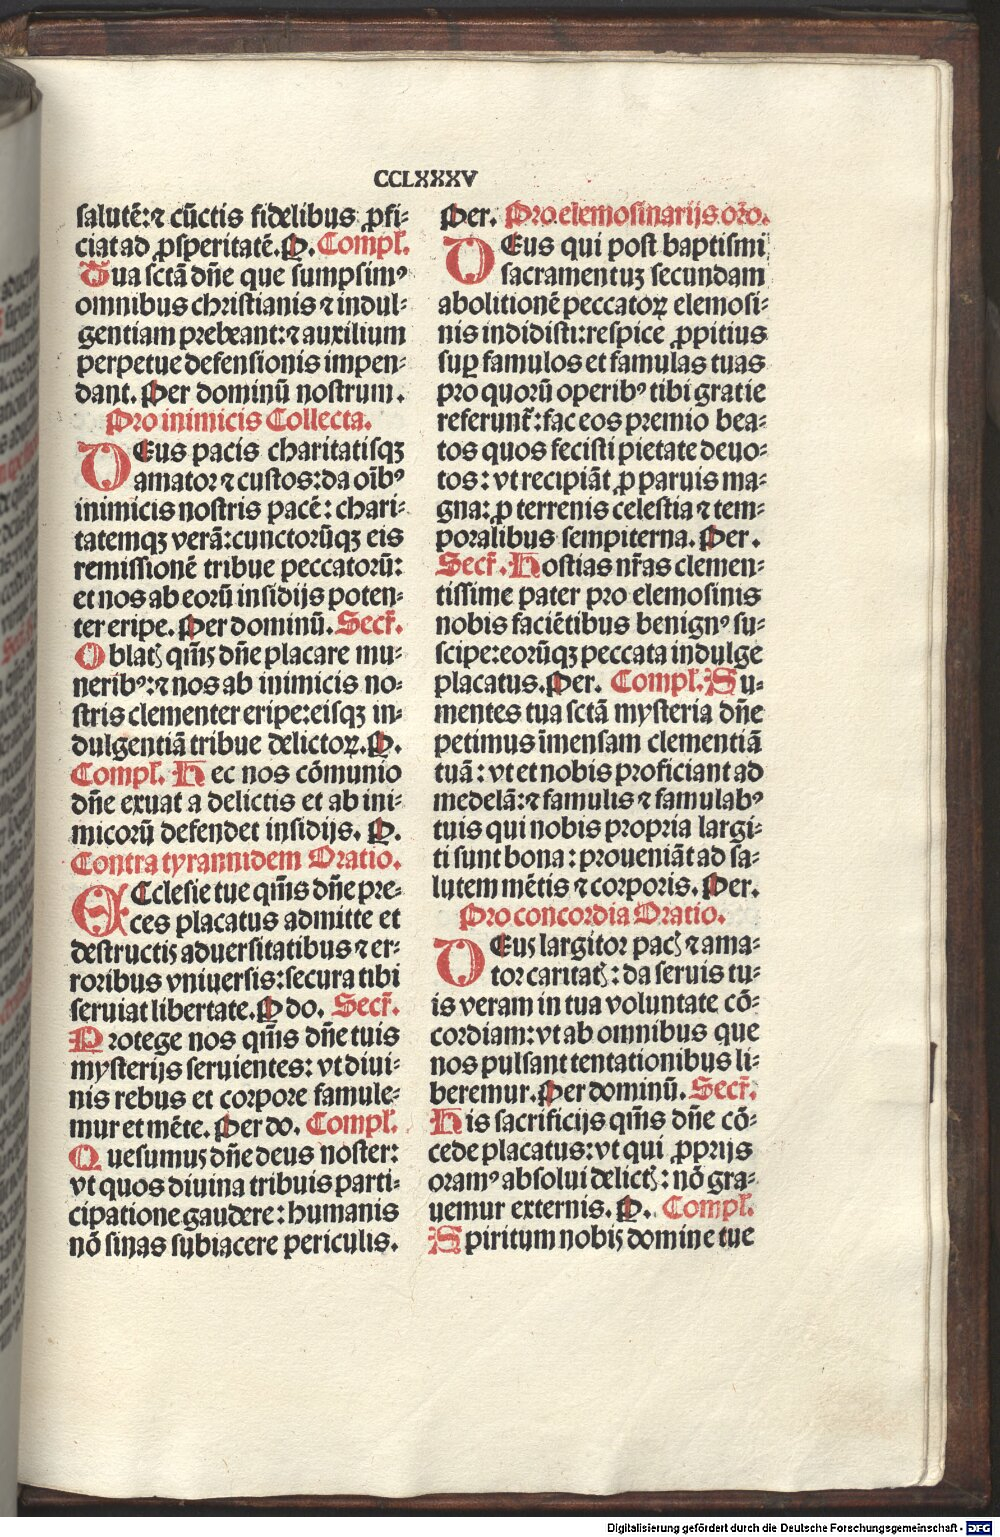 CCLXXXV
salutē:⁊ cūctis fidelibus ꝓfi⸗
ciat ad ꝓsperitatē. P. Compl'.
Tua sctā dñe que sumpsimꝰ
omnibus christianis ⁊ indul⸗
gentiam prebeant:⁊ auxilium
perpetue defensionis impen⸗
dant. Per dominū nostrum.
Pro inimicis Collecta.
DEus pacis charitatisqꝫ
amator ⁊ custos:da oībꝰ
inimicis nostris pacē: chari⸗
tatemqꝫ verā:cunctorūqꝫ eis
remissionē tribue peccatorū:
et nos ab eorū insidijs poten⸗
ter eripe. Per dominū. Secr̄.
Oblatꝭ qm̄s dñe placare mu⸗
neribꝰ:⁊ nos ab inimicis no⸗
stris clementer eripe:eisqꝫ in⸗
dulgentiā tribue delictoꝝ. P.
Compl'. Hec nos cōmunio
dñe exuat a delictis et ab ini⸗
micorū defendet insidijs. P.
Contra tyrannidem Oratio.
ECclesie tue qm̄s dñe pre⸗
ces placatus admitte et
destructis aduersitatibus ⁊ er⸗
roribus vniuersis:secura tibi
seruiat libertate. P do. Secr̄.
Protege nos qm̄s dñe tuis
mysterijs seruientes: vt diui⸗
nis rebus et corpore famule⸗
mur et mēte. Per do. Compl'.
Quesumus dñe deus noster:
vt quos diuina tribuis parti⸗
cipatione gaudere: humanis
nō sinas subiacere periculis.
Per. Pro elemosinarijs orō.
DEus qui post baptismi
sacramentuꝫ secundam
abolitionē peccatoꝝ elemosi⸗
nis indidisti:respice ꝓpitius
suꝑ famulos et famulas tuas
pro quorū operibꝰ tibi gratie
referunt̄:fac eos premio bea⸗
tos quos fecisti pietate deuo⸗
tos: vt recipiāt ꝓ paruis ma⸗
gna: ꝓ terrenis celestia ⁊ tem⸗
poralibus sempiterna. Per.
Secr̄. Hostias nr̄as clemen⸗
tissime pater pro elemosinis
nobis faciētibus benignꝰ su⸗
scipe:eorūqꝫ peccata indulge
placatus. Per. Compl'. Su⸗
mentes tua sctā mysteria dñe
petimus īmensam clementiā
tuā: vt et nobis proficiant ad
medelā:⁊ famulis ⁊ famulabꝰ
tuis qui nobis propria largi⸗
ti sunt bona: proueniāt ad sa⸗
lutem mētis ⁊ corporis. Per.
Pro concordia Oratio.
DEus largitor pacꝭ ⁊ ama⸗
tor caritatꝭ: da seruis tu⸗
is veram in tua voluntate cō⸗
cordiam:vt ab omnibus que
nos pulsant tentationibus li⸗
beremur. Per dominū. Secr̄.
His sacrificijs qm̄s dñe cō⸗
cede placatus:vt qui ꝓprijs
oramꝰ absolui delictꝭ: nō gra⸗
uemur externis. P. Compl'.
Spiritum nobis domine tue
Digitalisierung gefördert durch die Deutsche Forschungsgemeinschaft - DFG